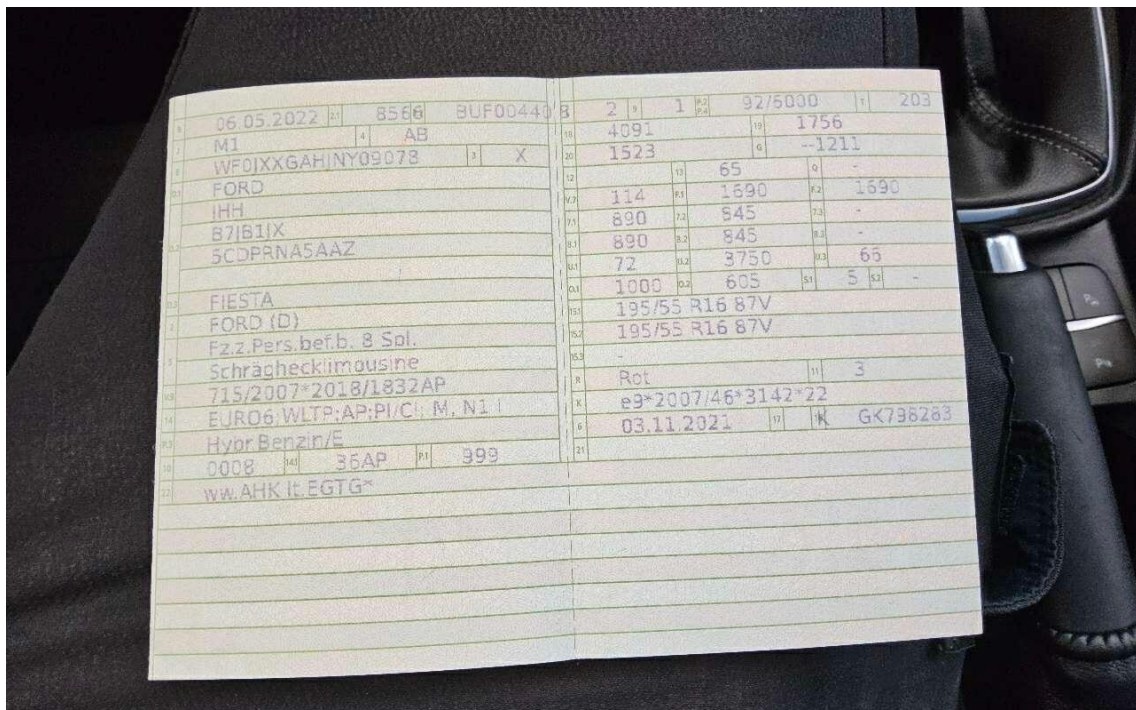 B 06.05.2022 2.1 8566 BUF00440 8
J M1 4 AB
E WF0JXXGAHJNY09078 3 X
D.1 FORD
D.2 JHH
B7JB1JX
5CDPRNA5AAZ
D.3 FIESTA
2 FORD (D)
5 Fz.z.Pers.bef.b. 8 Spl.
Schräghecklimousine
V.9 715/2007*2018/1832AP
14 EURO6;WLTP;AP;PI/CI; M, N1 I
P.3 Hybr.Benzin/E
10 0008 14.1 36AP P.1 999
22 ww.AHK lt.EGTG*
L 2 9 1 P.2 P.4 92/6000 T 203
18 4091 19 1756
20 1523 G --1211
12 13 65 Q -
V.7 114 F.1 1690 F.2 1690
7.1 890 7.2 845 7.3 -
8.1 890 8.2 845 8.3 -
U.1 72 U.2 3750 U.3 66
O.1 1000 O.2 605 S.1 5 S.2 -
15.1 195/55 R16 87V
15.2 195/55 R16 87V
15.3 -
R Rot 11 3
K e9*2007/46*3142*22
6 03.11.2021 17 K 16 GK798283
21